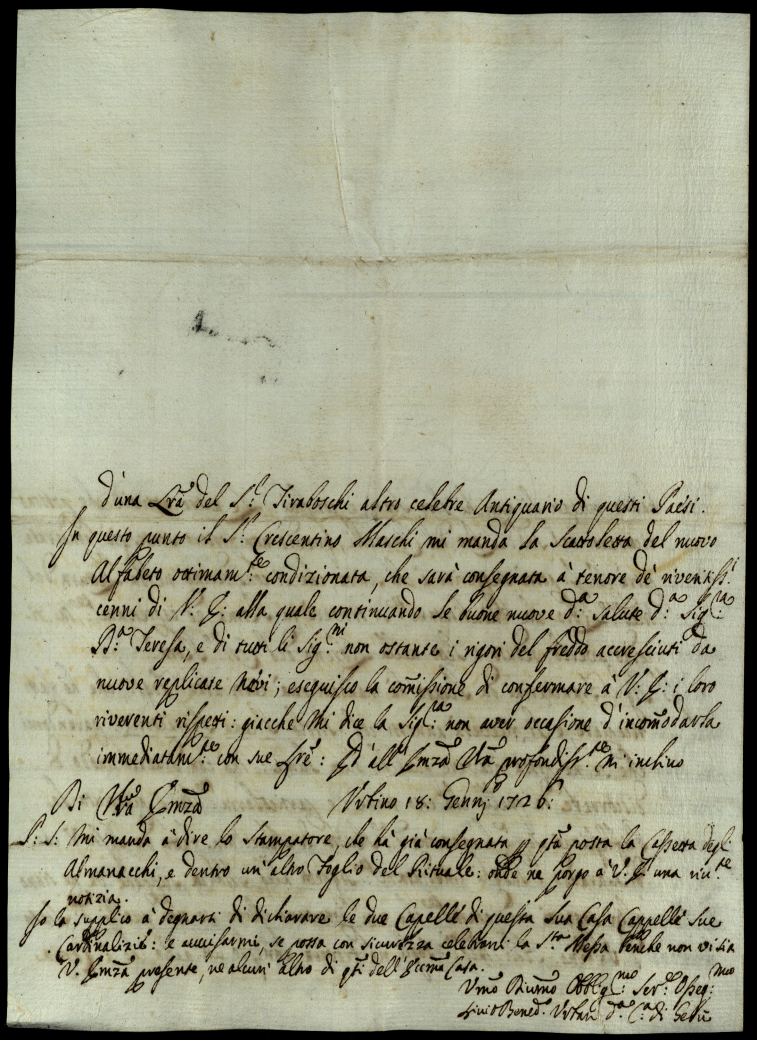 d'una Lrã del S.r Tiraboschi altro celebre Antiquario di questi Paesi.
In questo punto il S.r Crescentino Maschi mi manda la Scattoletta del nuovo
Alfabeto ottimam.te condizionata, che sarà consegnata à tenore de' riveritiss.i
cenni di V: E: alla quale continuando le buone nuove d.a salute d.a Sig.ra
D.a Teresa, e di tutti li Sig.ri non ostante i rigori del freddo accresciuti da
nuove replicate Nevi; eseguisco la comissione di confermare à V: E: i loro
riverenti rispetti: giacche mi dice la Sig.ra non aver occasione d'incomodarla
immediatam.te con sue Lre: Ed all' Emza Vra profondiss.te m'inchino
Di Vra Emza Urbino 18: Gennj 1726:
P: S: Mi manda à dire lo Stampatore, che hà già consegnata p qta posta la Cassetta degl'
Almanacchi, e dentro un' altro Foglio del Rituale: onde ne porgo à V: E: una riv.te
notizia.
Io la supplico à degnarsi di dichiarare le due Capelle di questa Sua Casa Cappelle sue
Cardinalizie: e avvisarmi, se possa con sicurezza celebrarsi la S.ta Messa benche non vi sia
V. Emza presente, ne alcun' altro di qti dell' Eccma Casa.
Umo Divmo Obblig.mo Ser.e Osseq.mo
Livio Bened.